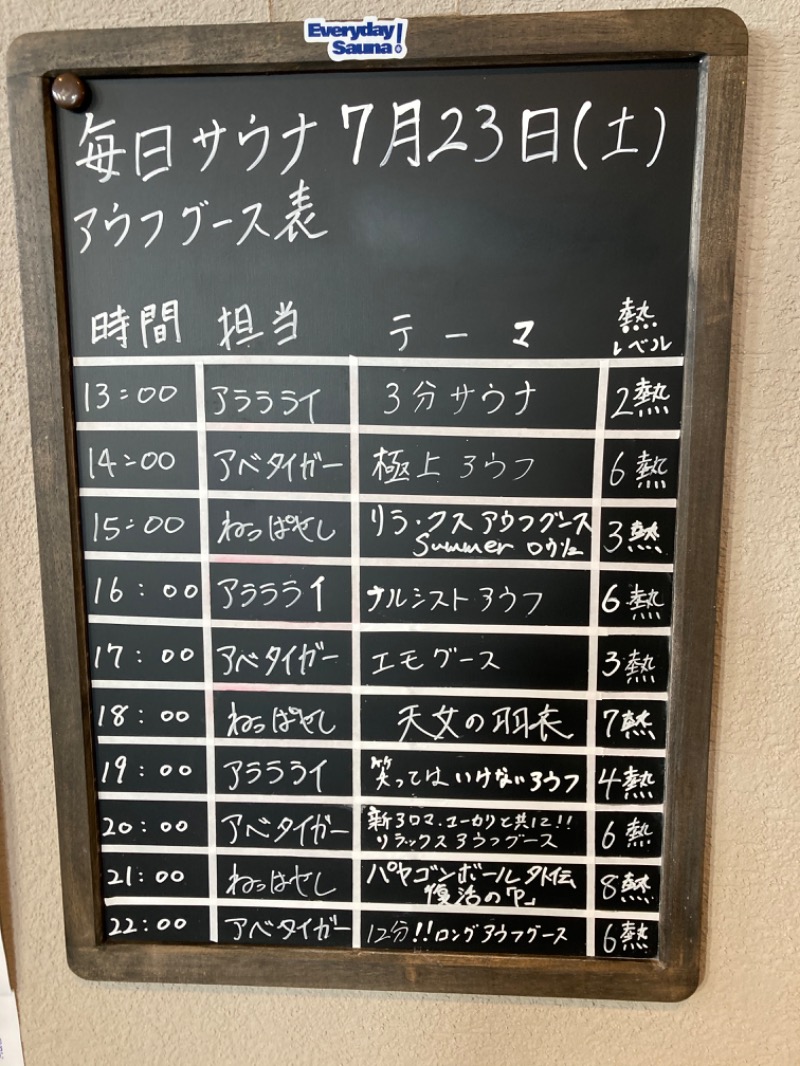 Everyday
Sauna!
毎日サウナ 7月23日(土)
アウフグース表
時間 担当 テーマ 熱レベル
13:00 アラララライ 3分サウナ 2熱
14:00 アベタイガー 極上アウフ 6熱
15:00 ねっぱやし リラックスアウフグース
Summer 3熱
16:00 アララライ ナルシストアウフ 6熱
17:00 アベタイガー エモグース 3熱
18:00 ねっぱやし 天女の羽衣 7熱
19:00 アララライ 笑ってはいけないアウフ 4熱
20:00 アベタイガー 新アロマ、ユーカリと共に!!
リラックスアウフグース 6熱
21:00 ねっぱやし パヤゴンボール外伝
復活の「P」 8熱
22:00 アベタイガー 12分!!ロングアウフグース 6熱